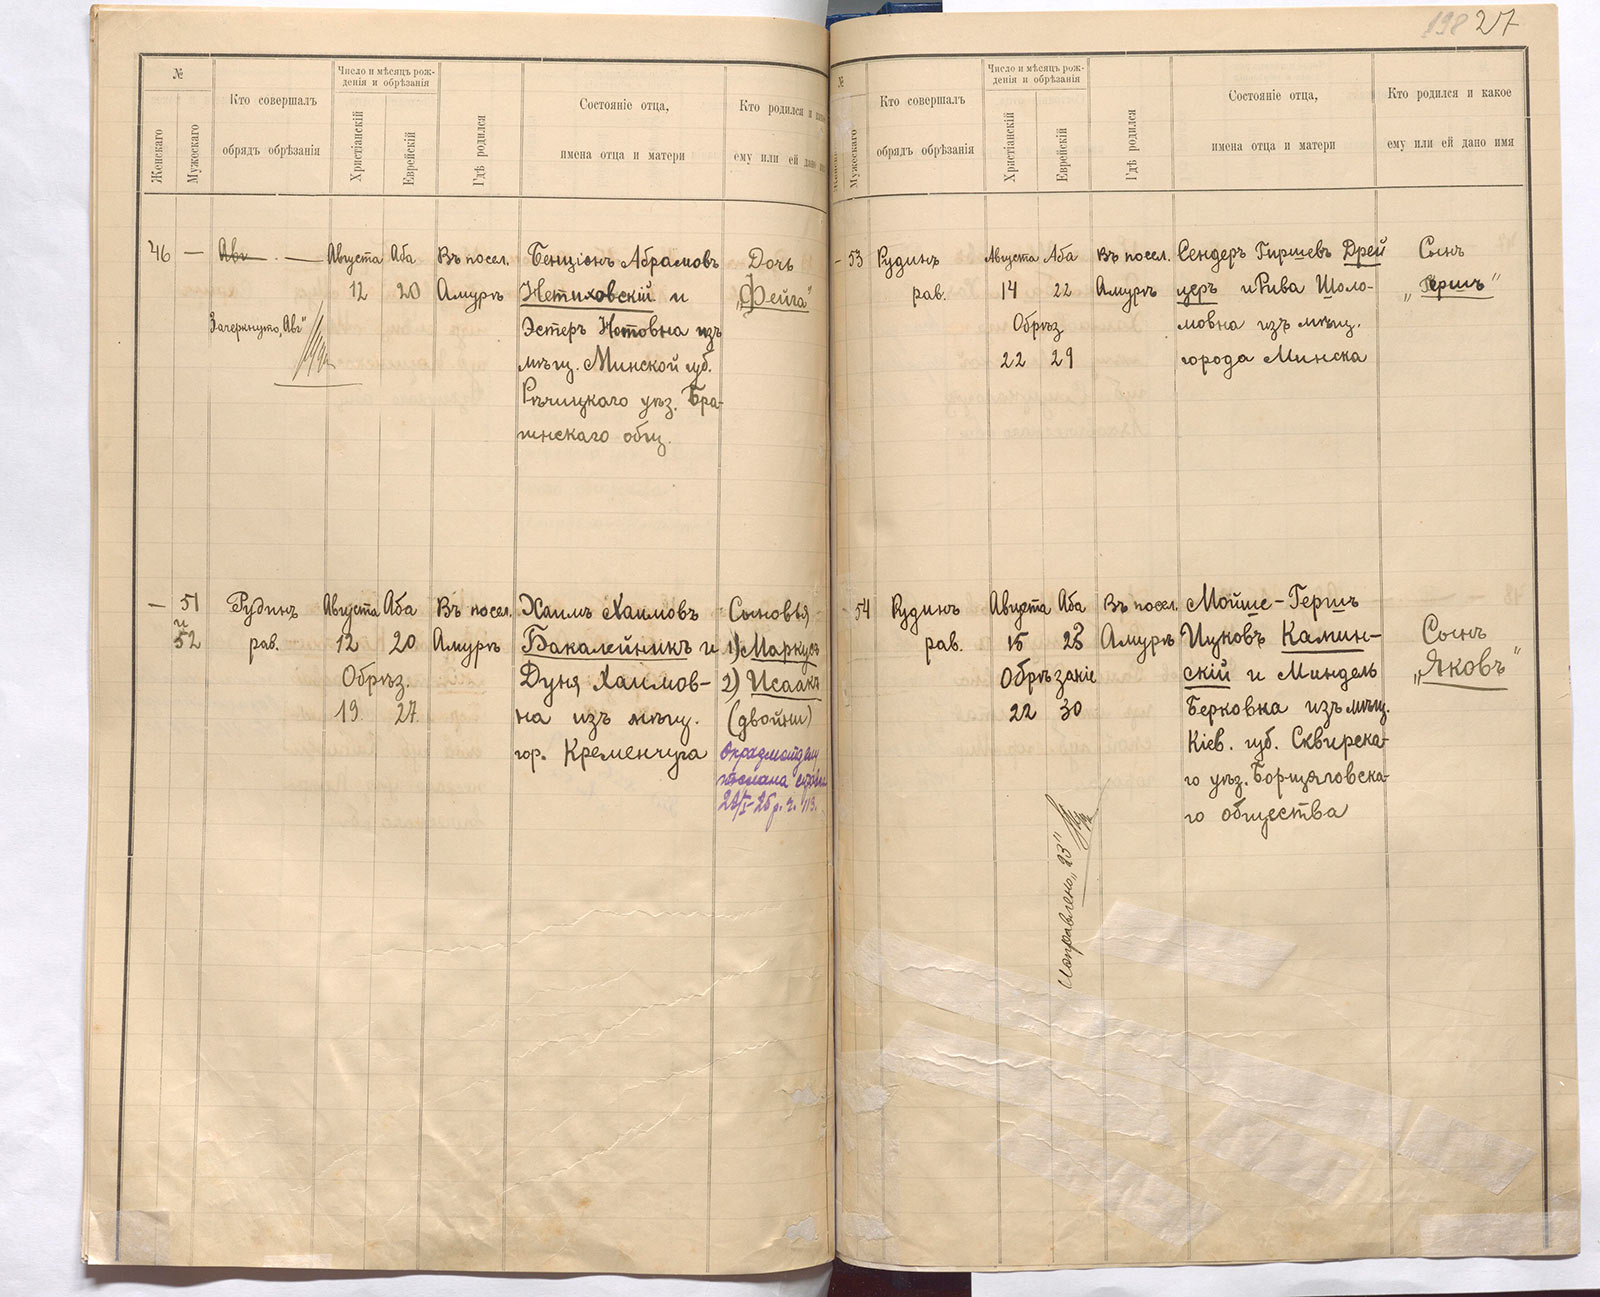 198 27
№
Женскаго
Мужескаго
Кто совершалъ
обрядъ обрѣзанія
Число и мѣсяцъ рож-
денія и обрѣзанія
Христіанскій
Еврейскій
Гдѣ родился
Состояніе отца,
имена отца и матери
Кто родился и
ему или ей дано
46 — Авг. — Августа Аба Въ посел. Бенціонъ Абрамовъ Дочь
12 20 Амуръ Нетиховскій и „Фейга"
Зачеркнуто „Авг" Эстеръ Нотовна изъ
мѣщ. Минской губ.
Рѣчицкаго уѣз. Бра-
гинскаго общ.
— 51 Рудинъ Августа Аба Въ посел. Хаимъ Хаимовъ Сыновья
и
52 рав. 12 20 Амуръ Бакалейникъ и 1) Маркусъ
Обрѣз. Дуня Хаимов- 2) Исаакъ
19 27 на изъ мѣщ. (двойни)
гор. Кременчуга
№
Мужескаго
Кто совершалъ
обрядъ обрѣзанія
Число и мѣсяцъ рож-
денія и обрѣзанія
Христіанскій
Еврейскій
Гдѣ родился
Состояніе отца,
имена отца и матери
Кто родился и какое
ему или ей дано имя
— 53 Рудинъ Августа Аба Въ посел. Сендеръ Гиршевъ Дрей Сынъ
рав. 14 22 Амуръ церъ и Рива Шоло- „Гершъ"
Обрѣз мовна изъ мѣщ.
22 29 города Минска
54 Рудинъ Августа Аба Въ посел. Мойше-Гершъ
рав. 15 23 Амуръ Ицковъ Камин- Сынъ
Обрѣзаніе скій и Миндель „Яковъ"
22 30 Берковна изъ мѣщ.
Кіев. губ. Сквирска-
го уѣз. Борщаговска-
го общества
Исправлено „23"